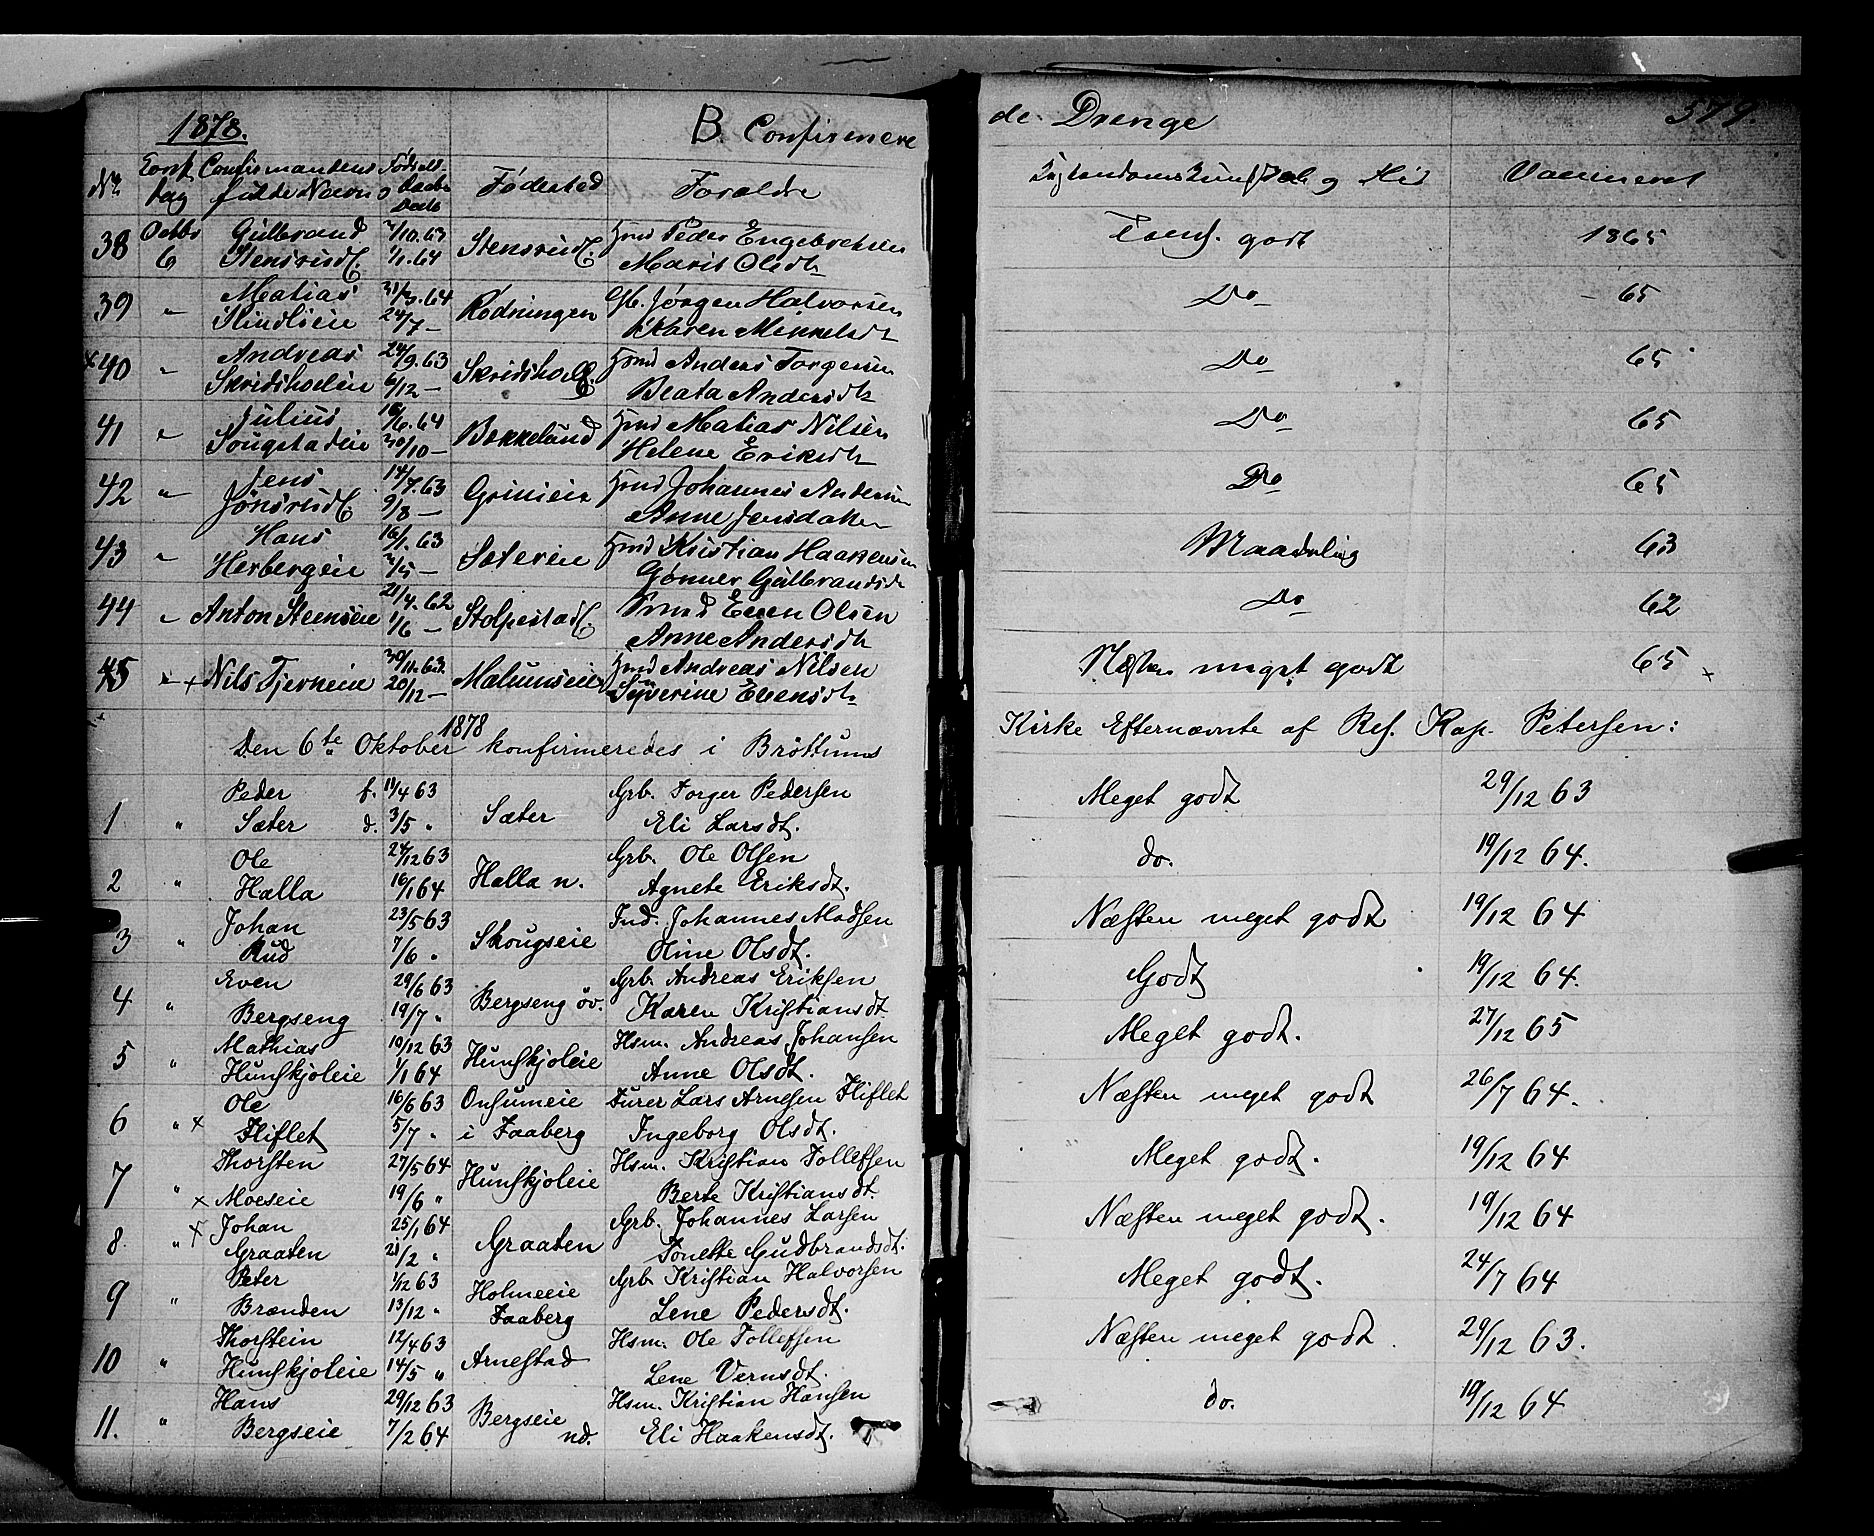 1878. B. Confirmere
de Drenge 579.
No. Conf. Dag Confirmandens fulde Navn Fødsels og Daabs Dato Fødested Forældre Christendomskundskab og Flid Vaccineret
38 Octbr 6 Gulbrand Stensrud 64 Stensrud Hmd Peder Engebretsen Marit Olsdtr godt 1865
39 " Matias 64 24/7 — Rødningen Jørgen Halvorsen Karen Mikkelsdtr Do — 65
x 40 " Andreas 24/9.63 6/12 — Hmd Anders Torgersen Beata Andersdtr Do 65
41 " Julius 16/6.64 30/10 — Bakkelund Hmd Matias Nilsen Helene Eriksdtr Do 65
42 " Jens Jønsrud 14/7.63 9/8 — Grimseie Hmd Johannes Andersen Anne Jensdatter Do 65
43 " Hans Herbergeie 16/1.63 /5 — Hmd Kristian Haakensen Gønner Gulbrandsdtr Maadelig 63
44 " Anton Steenseie 21/4.62 1/6 — Stolpestad Hmd Even Olsen Anne Andersdtr Do 62
45 " x Nils Tjerneie 30/11.63 20/12 — Malumseie Hmd Andreas Nilsen Syverine Evensdtr Næsten meget godt 65 x
Den 6te Oktober 1878 konfirmeredes i Brøttums Kirke Efternævnte af Res. Kap. Petersen:
1 " Peder Sæter f. 11/4 63 d. 3/5 " Sæter Grb. Torger Pedersen Eli Larsdt. Meget godt 29/12 63
2 " Ole Halla 24/12 63 16/1 64 Halla n. Grb. Ole Olsen Agnete Eriksdt. do. 19/12 64.
3 " Johan Rud 23/5 63 7/6 " Skougseie Ind. Johannes Madsen Oline Olsdt. Næsten meget godt 19/12 64
4 " Even Bergseng 29/6 63 19/7 " Bergseng øv. Grb. Andreas Eriksen Karen Kristiansdt. Godt 19/12 64.
5 " Mathias Hunskjoleie 19/12 63 1/1 64 Hunskjoleie Hsm. Andreas Johansen Anne Olsdt. Meget godt. 27/12 65
6 " x Ole Fliflet 16/6 63 5/7 " Onsumeie i Faaberg Furer Lars Arnesen Fliflet Ingeborg Olsdt. Næsten meget godt 26/7 64.
7 " x Thorsten Moeseie 27/5 64 19/6 " Hunskjoleie Hsm. Kristian Tollefsen Berte Kristiansdt. Meget godt. 19/12 64
8. " x Johan Graaten 25/1 64 21/2 " Graaten Grb. Johannes Larsen Tonette Gudbrandsdt. Næsten meget godt. 19/12 64
9 " Peter Brænden 1/12 63 13/12 " Holmeeie Faaberg Grb. Kristian Halvorsen Lene Pedersdt. Meget godt. 24/7 64
10 " Thorstein Hunskjoleie 12/4 63 14/5 " Arnestad Hsm. Ole Tollefsen Lene Vernsdt. Næsten meget godt 29/12 63.
11. " Hans Bergseie 29/12 63 7/2 64 Bergseie nd. Hsm. Kristian Hansen Eli Haakensdt. do. 19/12 64